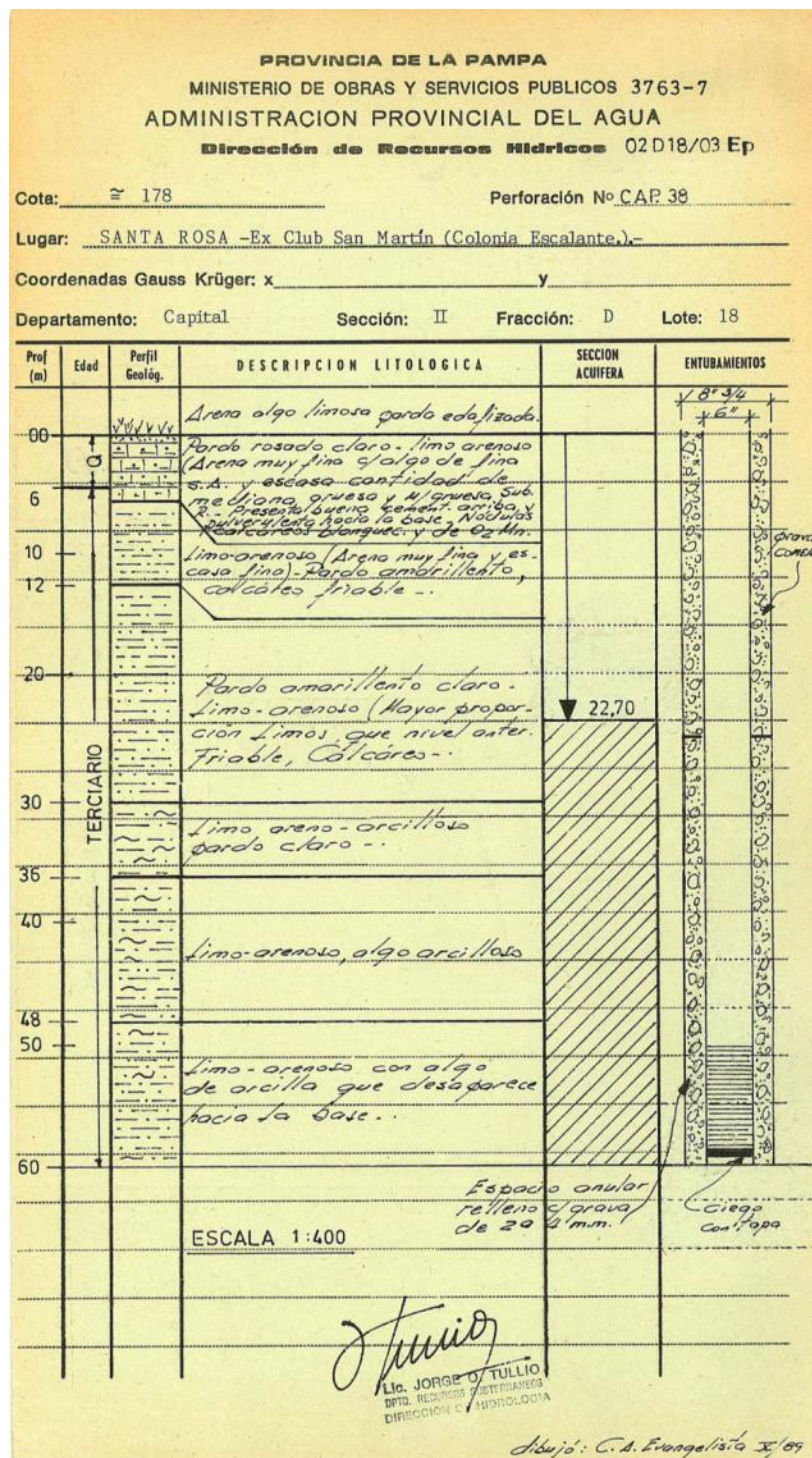 PROVINCIA DE LA PAMPA
MINISTERIO DE OBRAS Y SERVICIOS PUBLICOS 3763-7
ADMINISTRACION PROVINCIAL DEL AGUA
Dirección de Recursos Hídricos 02D18/03 Ep
Cota: ≅ 178 Perforación Nº CAP. 38
Lugar: SANTA ROSA -Ex Club San Martín (Colonia Escalante.).-
Coordenadas Gauss Krüger: x y
Departamento: Capital Sección: II Fracción: D Lote: 18
Prof (m) Edad Perfil Geológ. DESCRIPCION LITOLOGICA SECCION ACUIFERA ENTUBAMIENTOS
8" 3/4
6"
Arena algo limosa parda edafizada.
00
Q
Pardo rosado claro - limo arenoso
(Arena muy fina c/algo de fina
s.A. y escasa cantidad de
mediana, gruesa y M/gruesa, Sub.
R.- Presenta buena cement. arriba y
pulverulenta hacia la base. Nódulos
calcáreos blanquec. y de O2 Mn.
6
10
12
Limo-arenoso (Arena muy fina y es-
casa fina)-Pardo amarillento,
calcáreo friable -.
grava
20
Pardo amarillento claro -
Limo-arenoso (Mayor propor-
ción Limos, que nivel anter.
Friable, Calcáreo-.
22,70
TERCIARIO
30
Limo areno-arcilloso
pardo claro -.
36
40
Limo-arenoso, algo arcilloso
48
50
Limo-arenoso con algo
de arcilla que desaparece
hacia la base..
60
Espacio anular
relleno c/grava
de 2a 4 m.m.
Ciego
con tapa
ESCALA 1:400
Lic. JORGE O. TULLIO
DPTO. RECURSOS SUBTERRANEOS
DIRECCION DE HIDROLOGIA
dibujó: C.A. Evangelista X/89